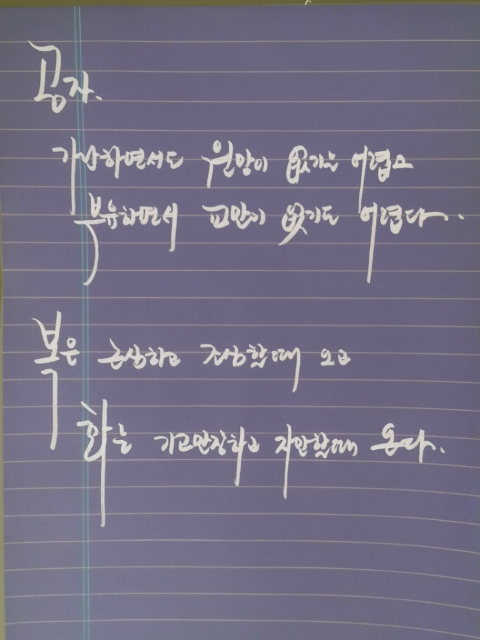 공자.
가난하면서도 원망이 없기는 어렵고
부유하면서 교만이 없기도 어렵다.
복은 근상하고 조심할때 오고
화는 기고만장하고 자만할때 온다.